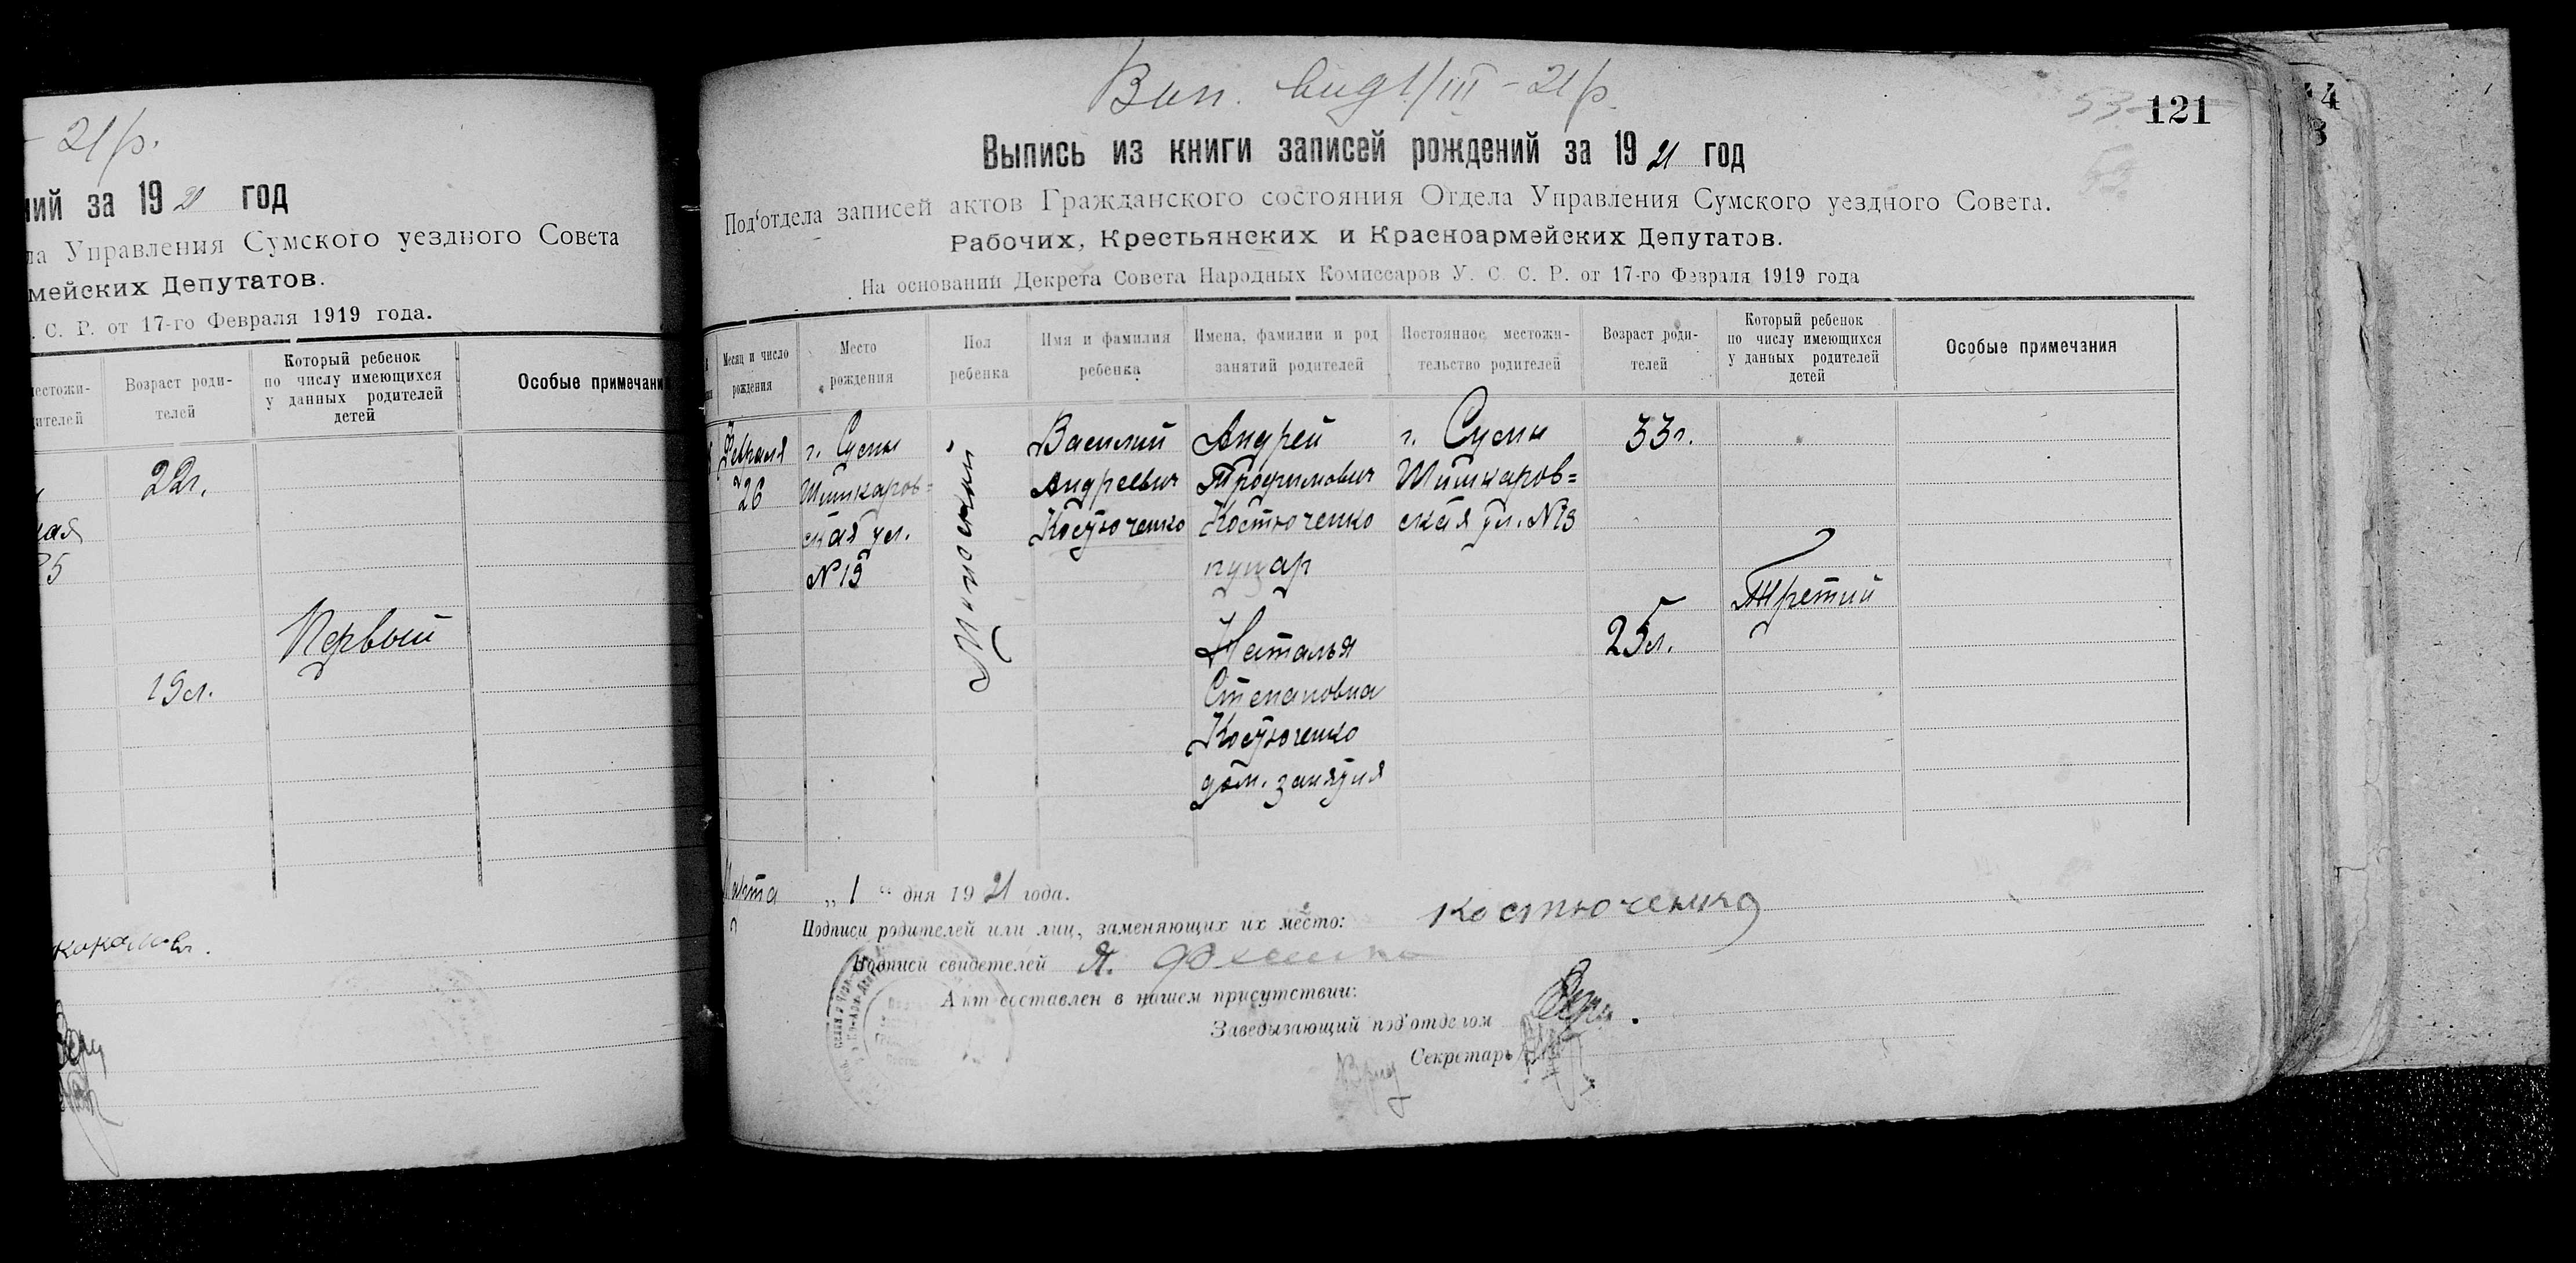 - 21/р.
ний за 1921 год
ла Управления Сумского уездного Совета
мейских Депутатов.
. С. Р. от 17-го Февраля 1919 года.
местожи-
ителей
Возраст роди-
телей
Который ребенок
по числу имеющихся
у данных родителей
детей
Особые примечани
22г.
кая
5
Первый
19л.
Вип. вид 1/III - 21/р.
53
121
Выпись из книги записей рождений за 1921 год
Под'отдела записей актов Гражданского состояния Отдела Управления Сумского уездного Совета.
Рабочих, Крестьянских и Красноармейских Депутатов.
На основании Декрета Совета Народных Комиссаров У. С. С. Р. от 17-го Февраля 1919 года
Месяц и число
рождения
Место
рождения
Пол
ребенка
Имя и фамилия
ребенка
Имена, фамилии и род
занятий родителей
Постоянное местожи-
тельство родителей
Возраст роди-
телей
Который ребенок
по числу имеющихся
у данных родителей
детей
Особые примечания
Февраля
26
г. Сумы
Шишкаров=
ская ул.
№13
Мужской
Василий
Андреевич
Костюченко
Андрей
Трофимович
Костюченко
Наталья
Степановна
Костюченко
дом. занятия
г. Сумы
Шишкаров=
ская ул. №13
33г.
25л.
Третий
Марта „1“ дня 1921 года.
Подписи родителей или лиц, заменяющих их место: Костюченко
Подписи свидетелей Я.
Акт составлен в нашем присутствии:
Заведывающий под'отделом
Секретарь